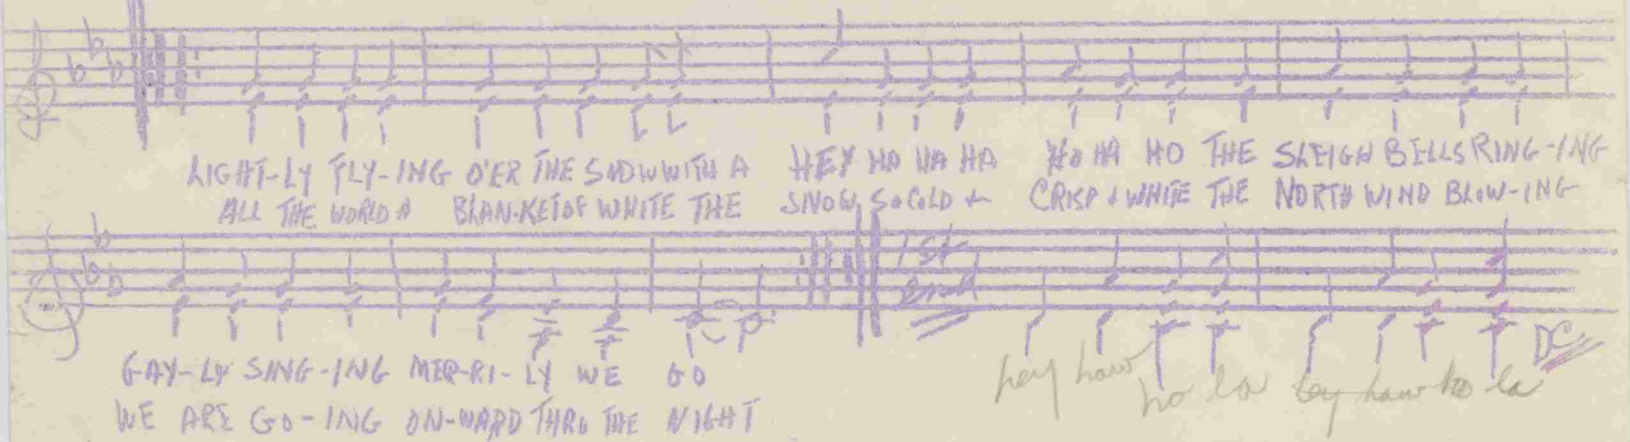 LIGHT-LY FLY-ING O'ER THE SNOW WITH A HEY HA HA HA HO HA HO THE SLEIGH BELLS RING-ING
ALL THE WORLD A BLAN-KET OF WHITE THE SNOW SO COLD + CRISP + WHITE THE NORTH WIND BLOW-ING
1st
End
GAY-LY SING-ING MER-RI-LY WE GO
WE ARE GO-ING ON-WARD THRU THE NIGHT
hey haw ho la hey haw ho la
DC